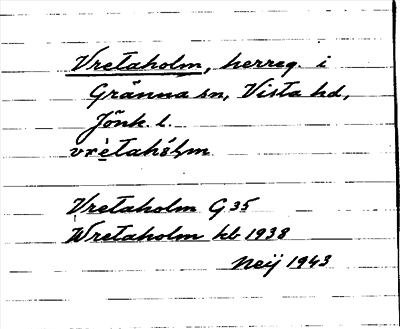 Vretaholm, herreg. i
Gränna sn, Vista hd,
Jönk. l.
vrètahólm
Vretaholm G 35
Wretaholm kb 1938
Neij 1943